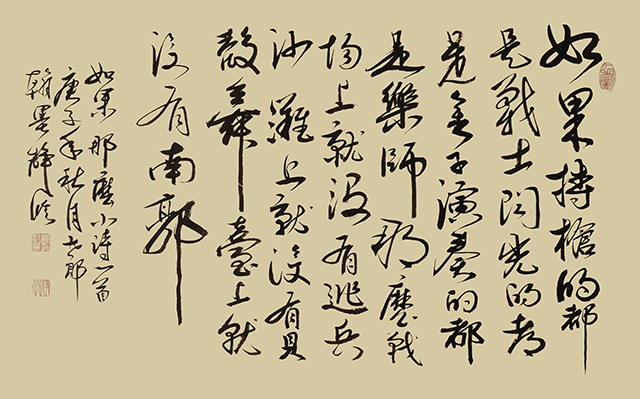 如果持槍的都
是戰士閃光的都
是金子演奏的都
是樂師那麼戰
場上就沒有逃兵
沙灘上就沒有貝
殼舞臺上就
沒有南郭
如果那麼小詩一首
庚子年秋月
翰墨